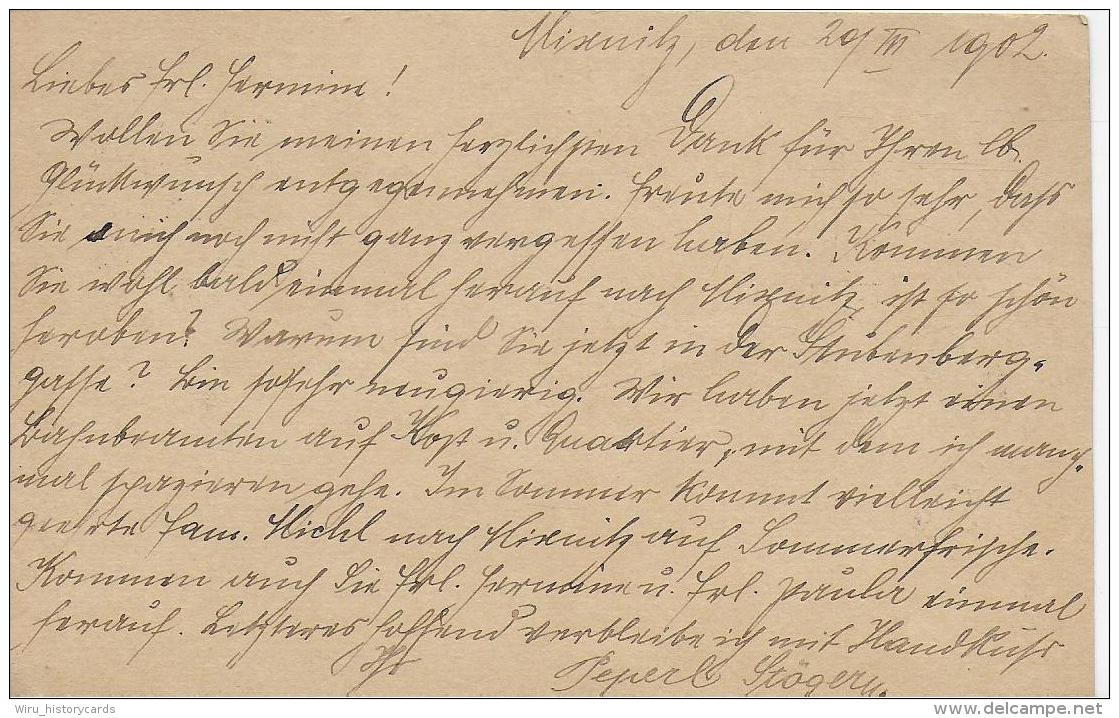 Mixnitz, den 29/III 1902.
Liebes Frl. Hermine!
Wollen Sie meinen herzlichsten Dank für Ihren lb.
Glückwunsch entgegennehmen. Freute mich so sehr, dass
Sie mich noch nicht ganz vergessen haben. Kommen
Sie wohl bald einmal herauf nach Mixnitz, ist so schön
heroben? Warum sind Sie jetzt in der Stubenberg-
gasse? Bin so sehr neugierig. Wir haben jetzt einen
Bahnbeamten auf Kost u. Quartier, mit dem ich manch-
mal spazieren gehe. Im Sommer kommt vielleicht
geerte Fam. Michl nach Mixnitz auf Sommerfrische.
Kommen auch Sie Frl. Hermine u. Frl. Paula einmal
herauf. Letzteres hoffend verbleibe ich mit Handkuss
Ihr Peperl
Wiru_historycards
www.delcampe.net